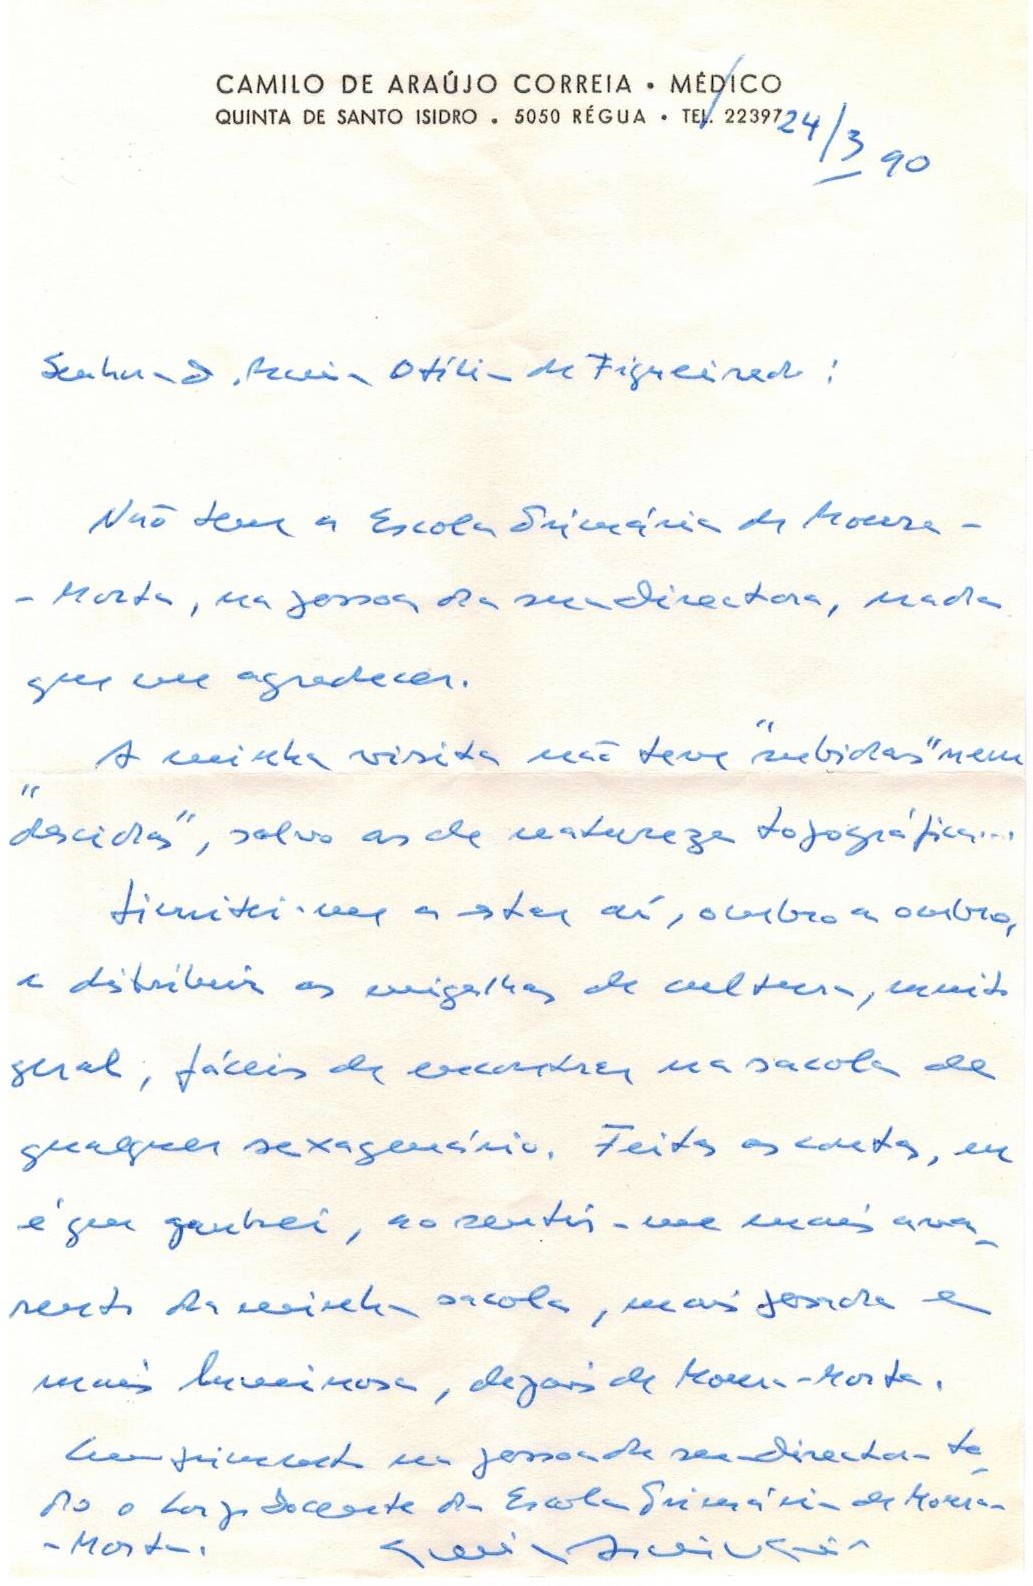 CAMILO DE ARAÚJO CORREIA • MÉDICO
QUINTA DE SANTO ISIDRO . 5050 RÉGUA • TEL. 22397
24/3 90
Senhora D. Maria Otília de Figueiredo:
Não tem a Escola Primária de Moura-
-Morta, na pessoa da sua directora, nada
que me agradecer.
A minha visita não teve "subidas" nem
"descidas", salvo as de natureza topográfica...
Limitei-me a estar aí, ombro a ombro,
a distribuir as migalhas de cultura, muito
geral, fáceis de encontrar na sacola de
qualquer sexagenário. Feitas as contas, eu
é que ganhei, ao sentir-me mais ava-
rento da minha sacola, mais pesada e
mais luminosa, depois de Moura-Morta.
Cumprimento na pessoa da sua directora to-
do o Corpo Docente da Escola Primária de Moura-
-Morta.